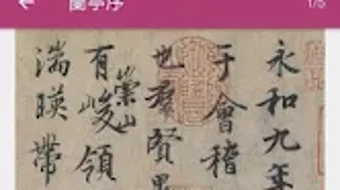 蘭亭序
1/5
永和九年
于會稽
也羣賢畢
有崇山峻領
湍暎帶